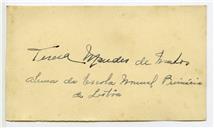 Teresa Mendes de Matos
aluna da Escola Normal Primária
de Lisboa